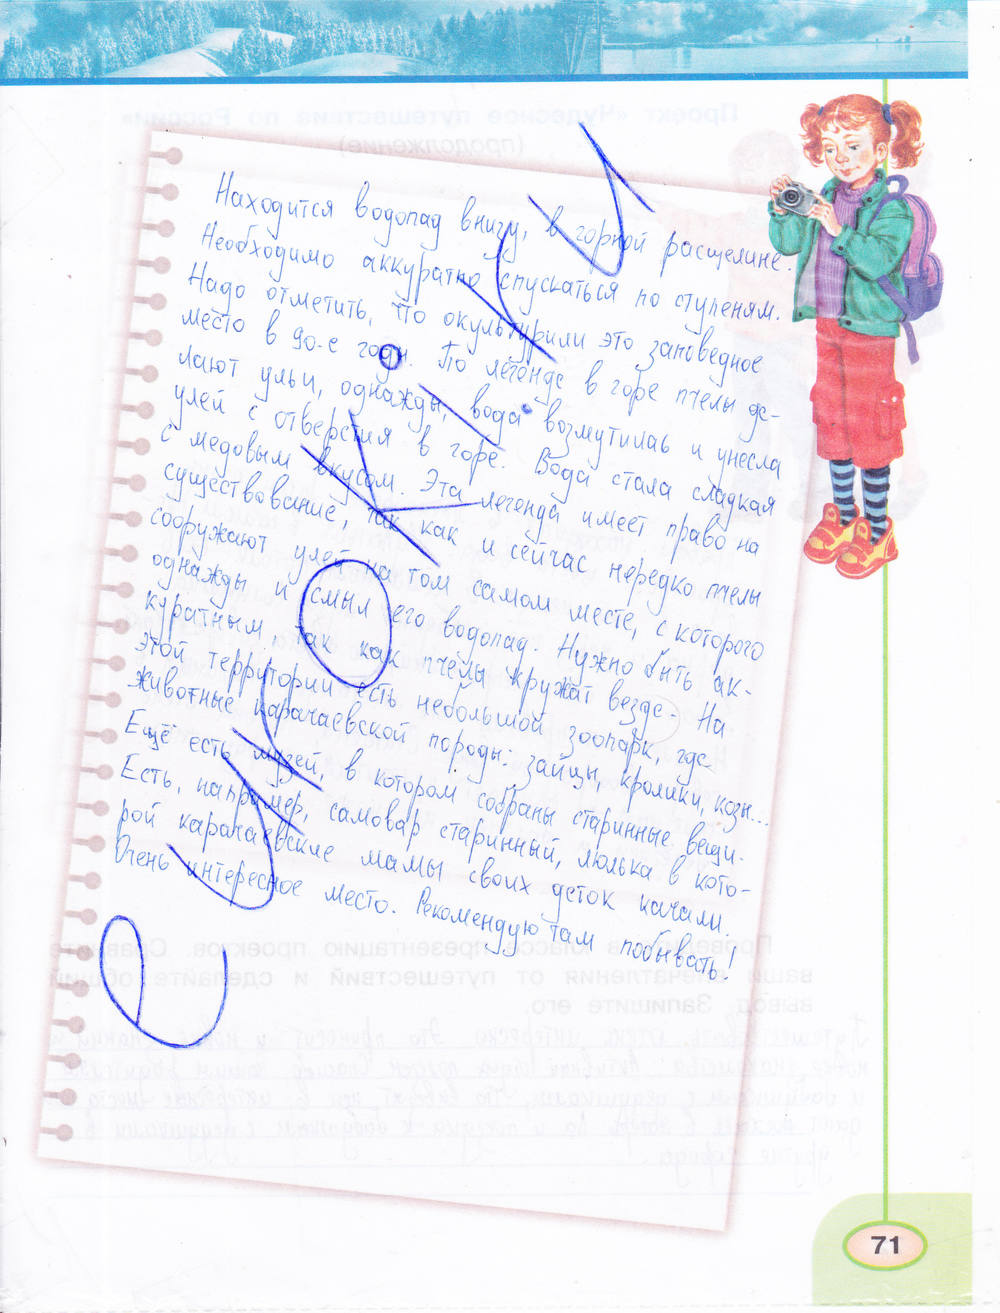 Находится водопад внизу, в горной расщелине.
Необходимо аккуратно спускаться по ступеням.
Надо отметить, что окультурили это заповедное
место в 90-е годы. По легенде в горе пчелы де-
лают ульи, однажды, вода возмутилась и унесла
улей с отверстия в горе. Вода стала сладкая
с медовым вкусом. Эта легенда имеет право на
существование, так как и сейчас нередко пчелы
сооружают улей на том самом месте, с которого
однажды и смыл его водопад. Нужно быть ак-
куратным, так как пчёлы кружат везде. На
этой территории есть небольшой зоопарк, где
животные карачаевской породы: зайцы, кролики, козы...
Ещё есть музей, в котором собраны старинные вещи.
Есть, например, самовар старинный, люлька в кото-
рой карачаевские мамы своих деток качали.
Очень интересное место. Рекомендую там побывать!
71